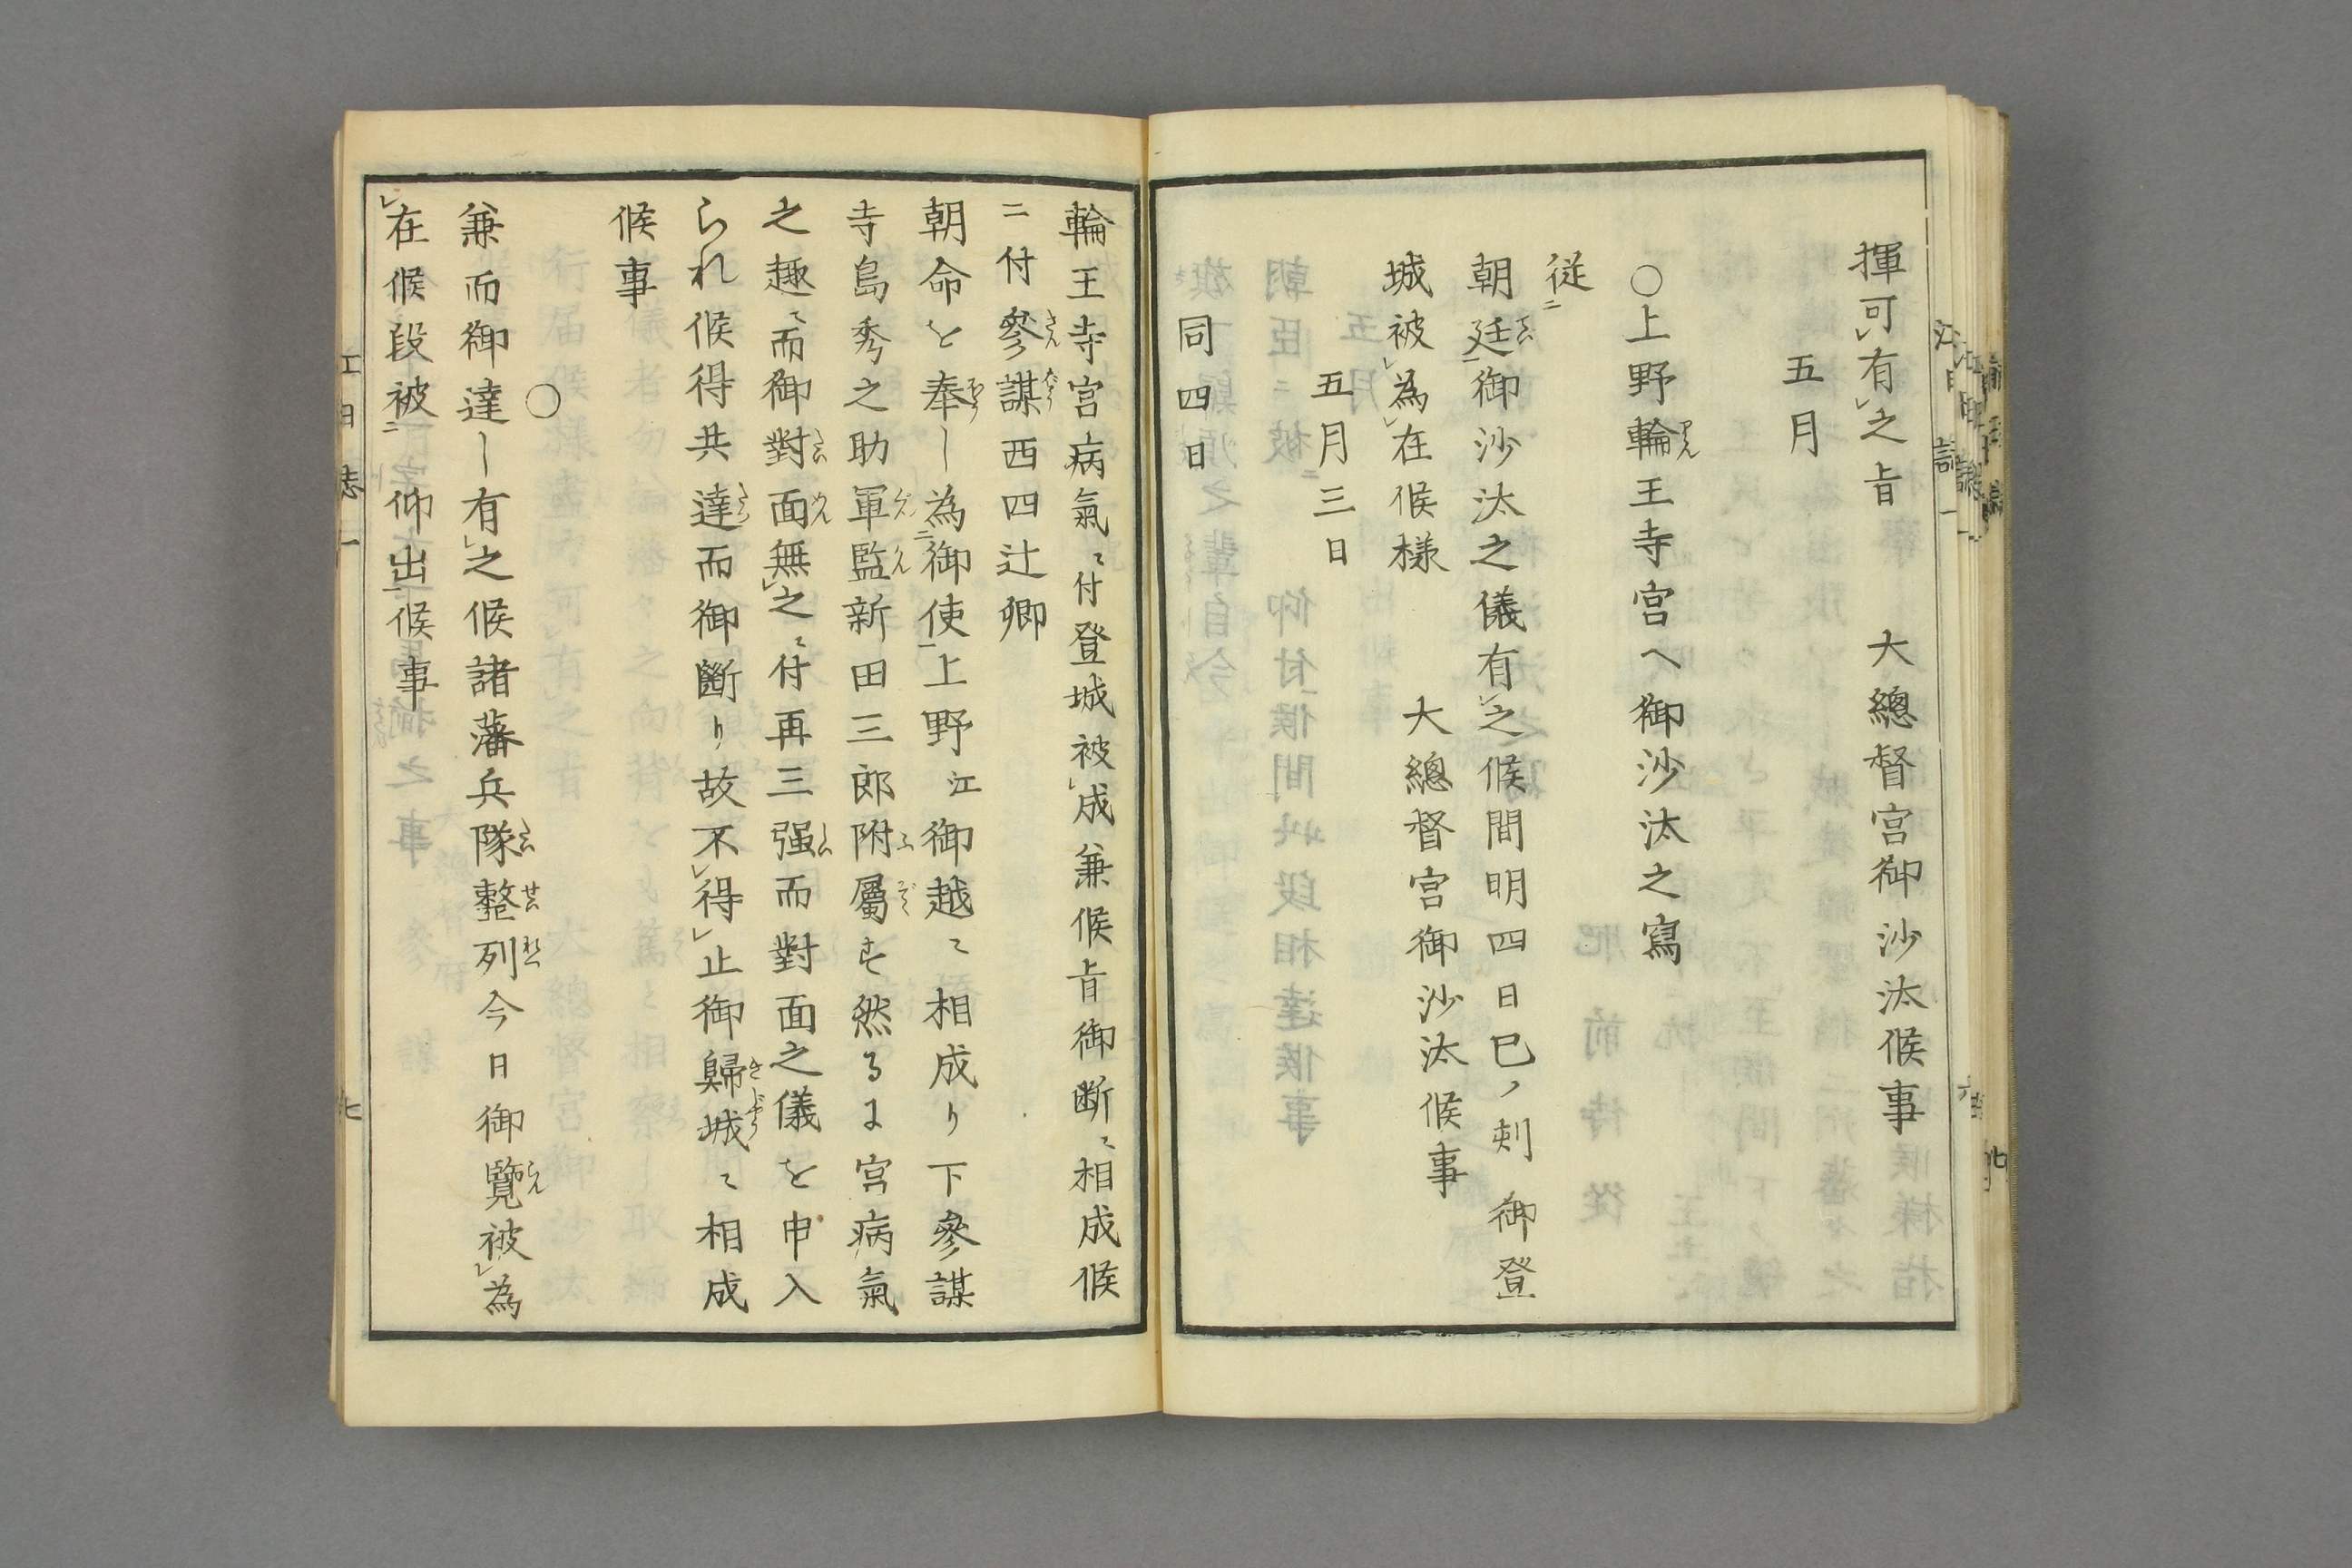 揮可㆑有㆑之旨　大總督宮御沙汰候事
五月
○上野輪王寺宮へ御沙汰之寫
従㆓
朝廷㆒御沙汰之儀有㆑之候間明四日巳ノ刺　御登
城被㆑為㆑在候様
大總督宮御沙汰候事
五月三日
同四日
輪王寺宮病氣ニ付登城被㆑成兼候旨御断ニ相成候
ニ付參謀西四辻卿
朝命を奉し為㆓御使㆒上野江御越ニ相成り下參謀
寺島秀之助軍監新田三郎附屬す然るに宮病氣
之趣ニ而御對面無㆑之ニ付再三强而對面之儀を申入
られ候得共達而御斷り故不㆑得㆑止御歸城ニ相成
候事
○
兼而御達し有㆑之候諸藩兵隊整列今日御覽被㆑為
㆑在候段被㆓　仰出㆒候事
江日誌一
七